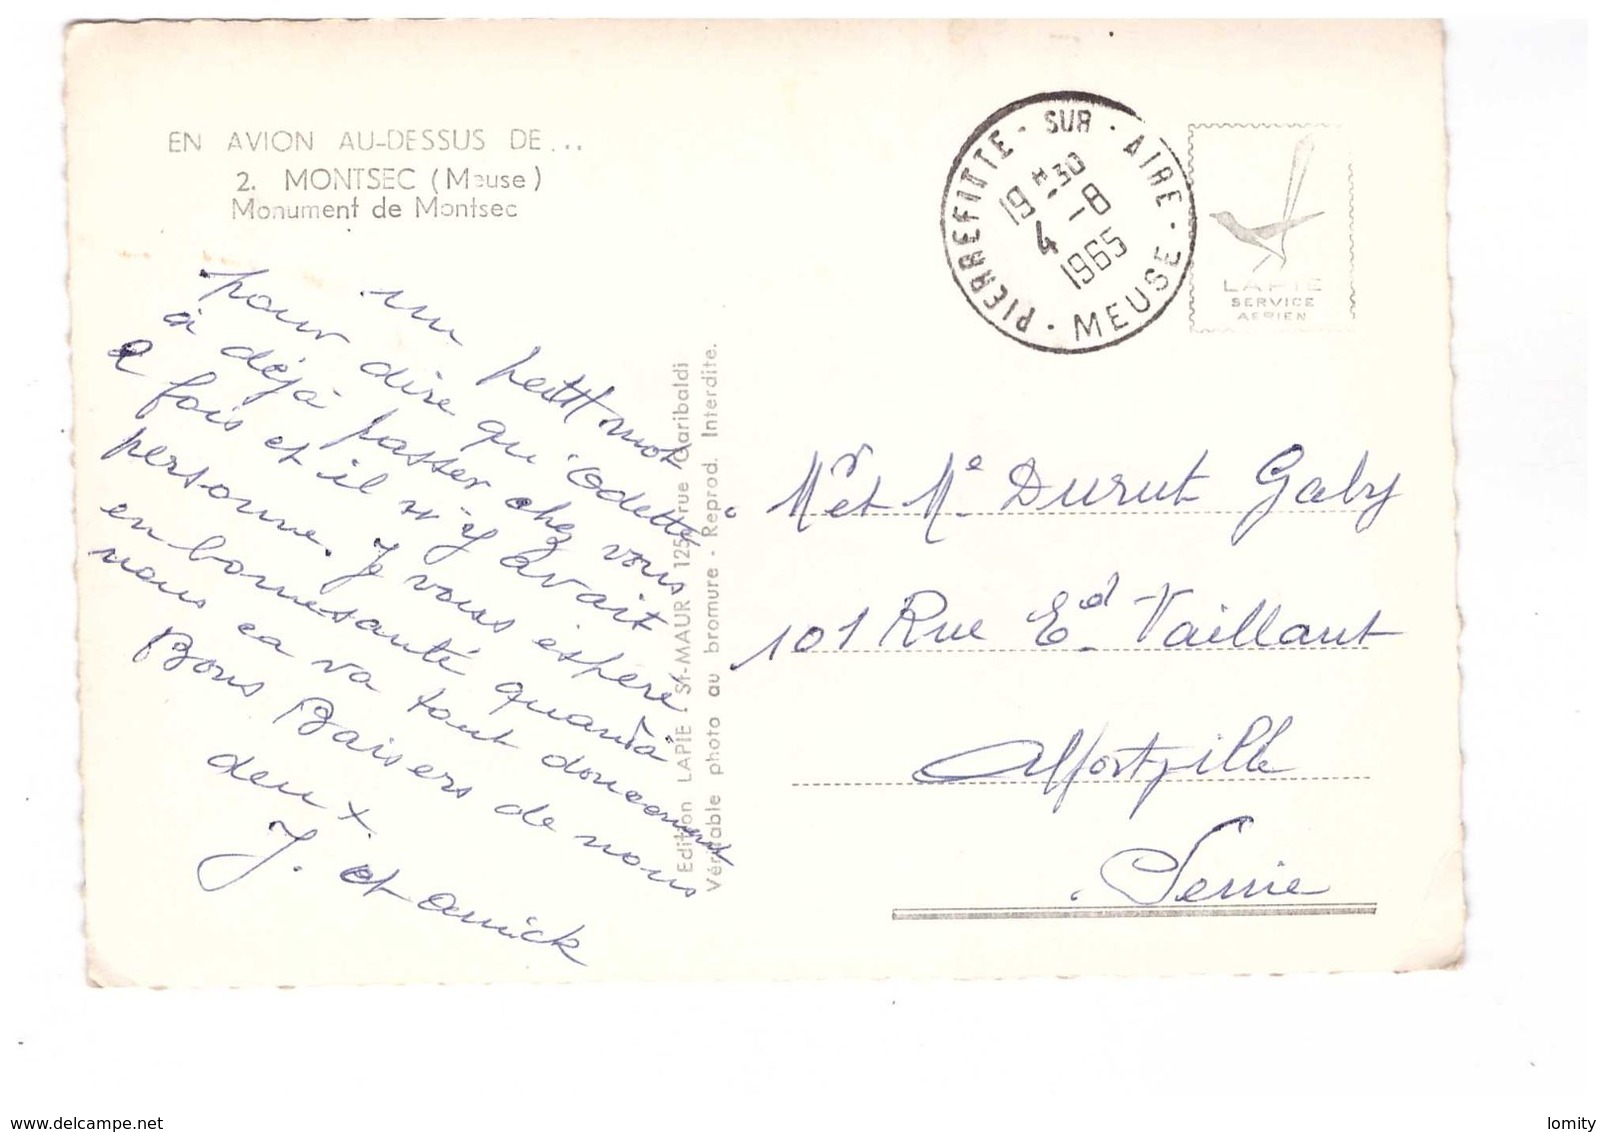 EN AVION AU-DESSUS DE...
2. MONTSEC (Meuse)
Monument de Montsec
un petit mot
pour dire qu'Odette
à déjà passer chez vous
2 fois et il n'y avait
personne. Je vous espère
en bonne santé quand à
nous ca va tout doucement
Bons Baisers de nous
deux
J. et annick
Edition LAPIE - St-MAUR 125, rue Garibaldi
Véritable photo au bromure - Reprod. Interdite.
PIERREFITTE - SUR - AIRE - MEUSE
19H30
4 -8
1965
LAPIE
SERVICE
AERIEN
Mr et Me Durut Gaby
101 Rue Ed. Vaillant
Alfortville
Seine
delcampe.net
lomity